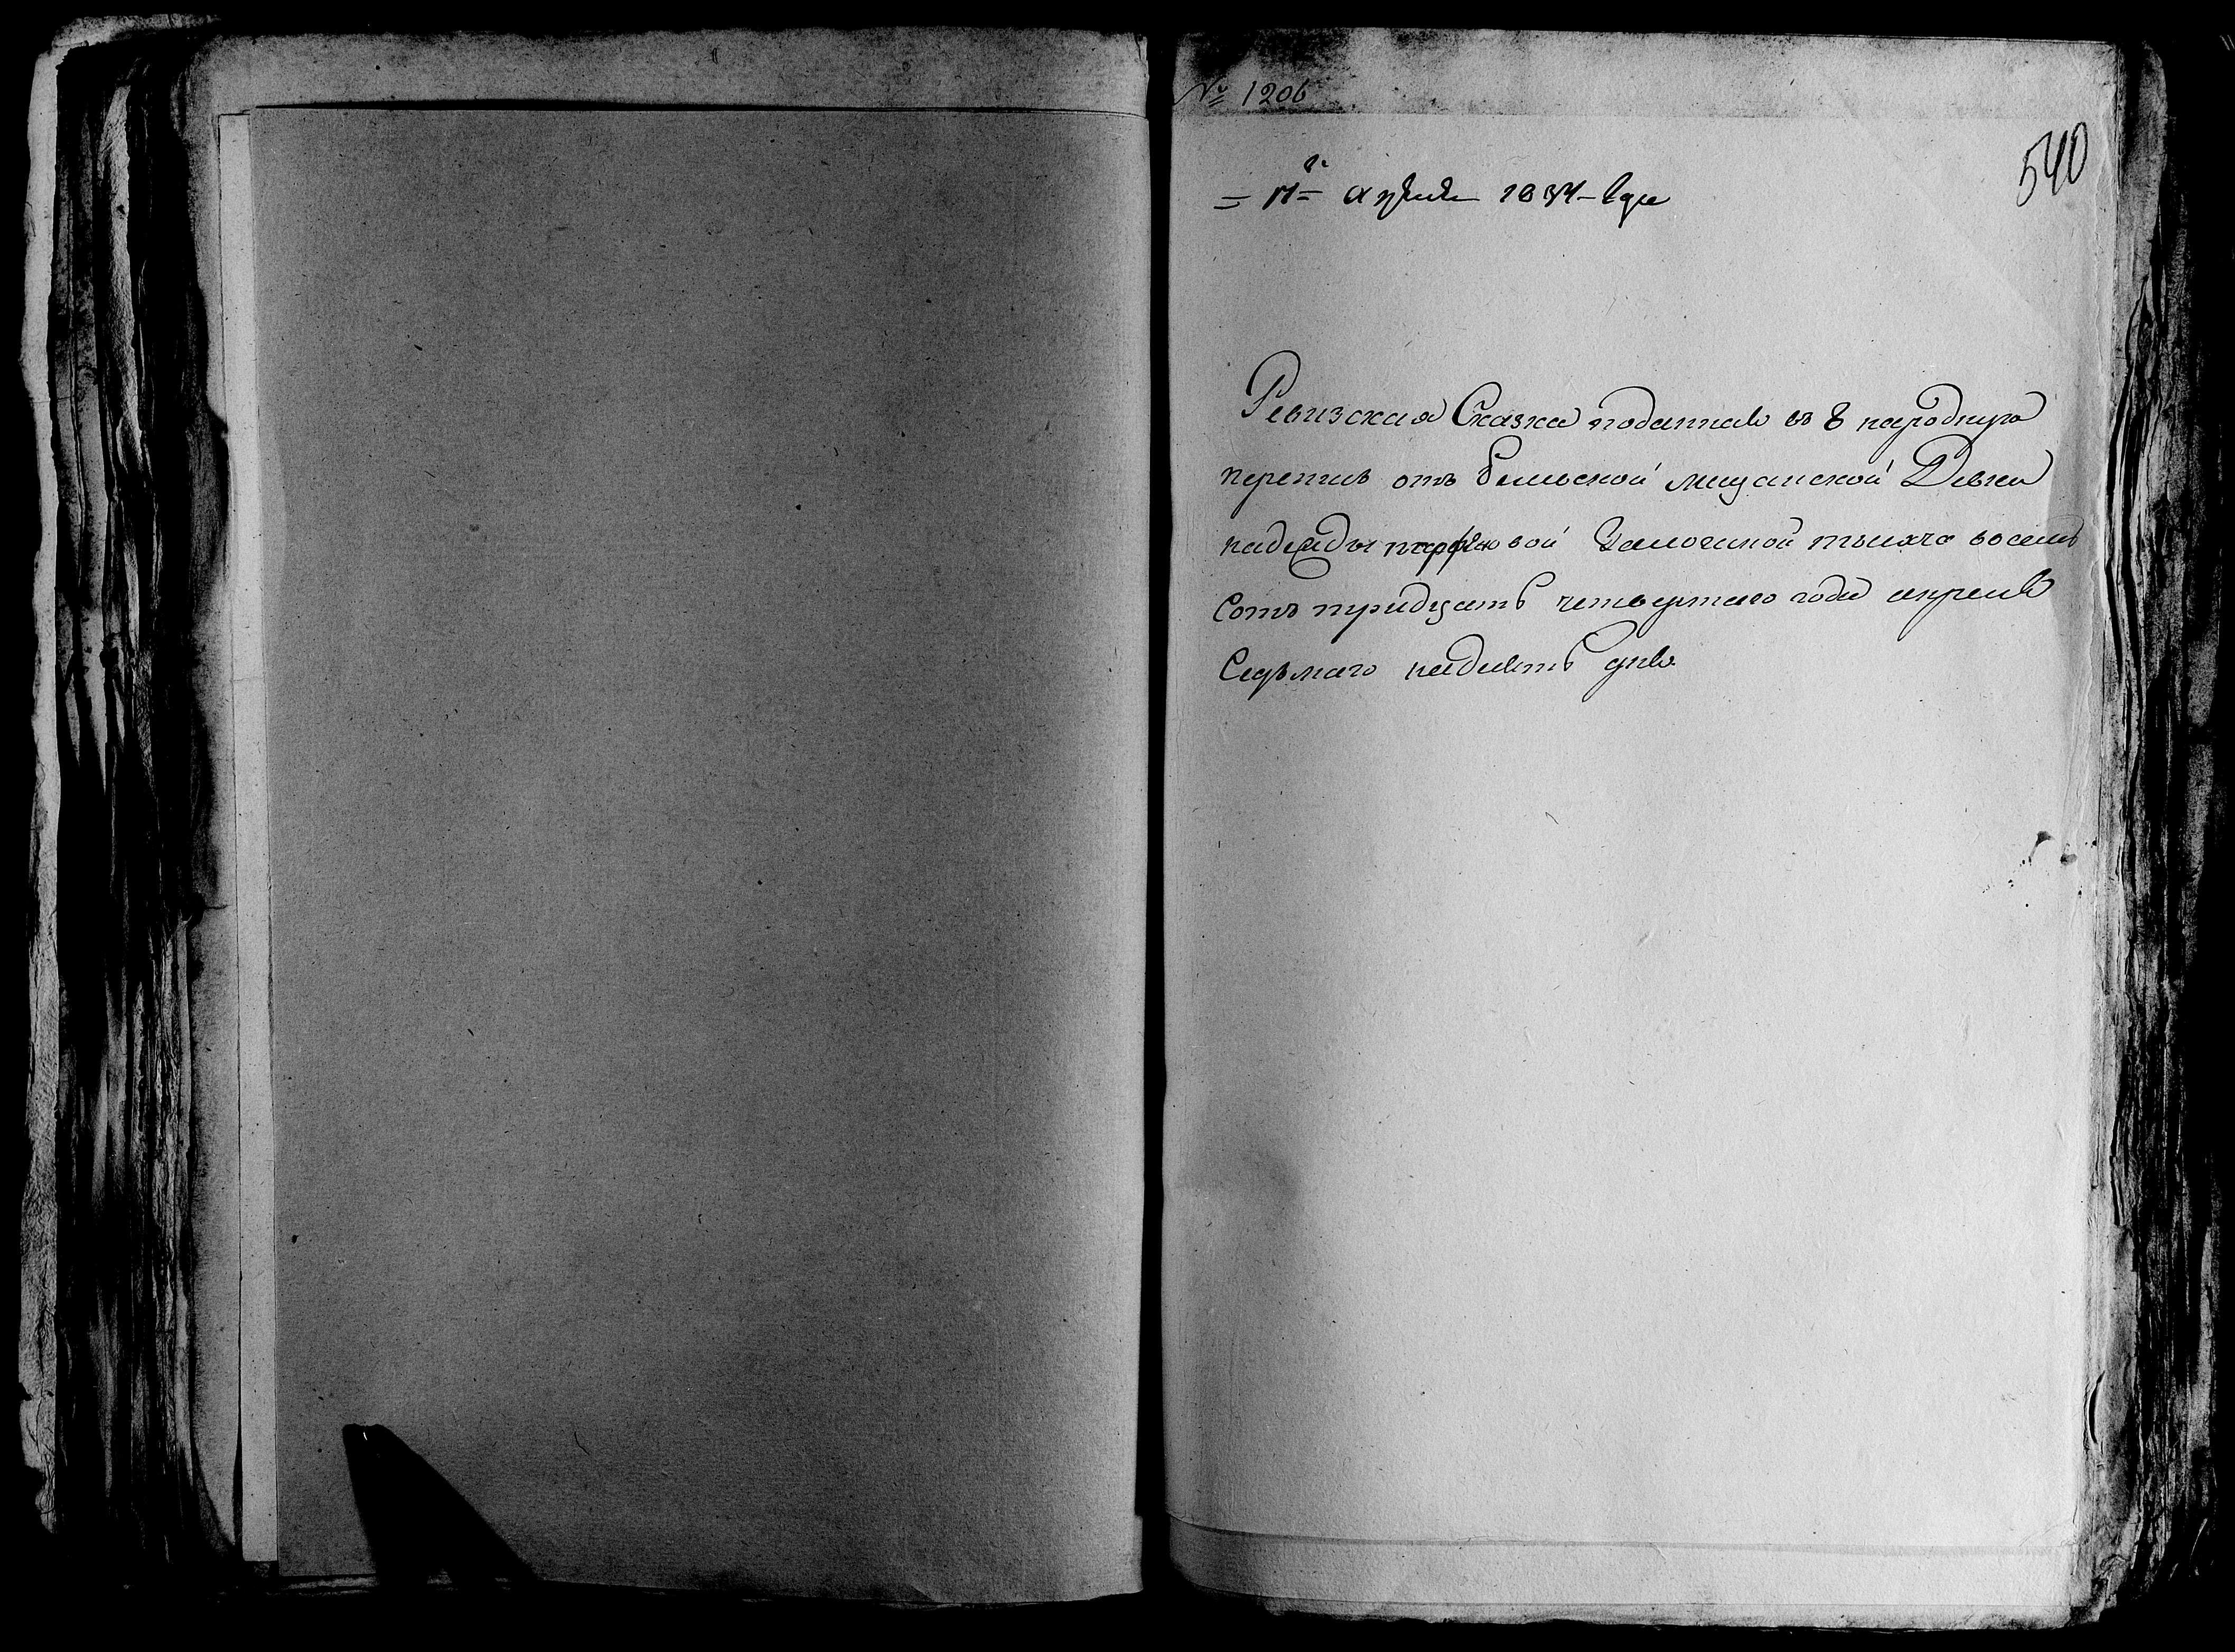 № 1206
540
17 апреля 1834 году
Ревизская Сказка поданная в 8 народную
перепись отъ бельской мещанской Девки
надежды парфеновой тысяча восемь
сотъ тридцать четвертаго года апреля
Седьмаго надесять дня